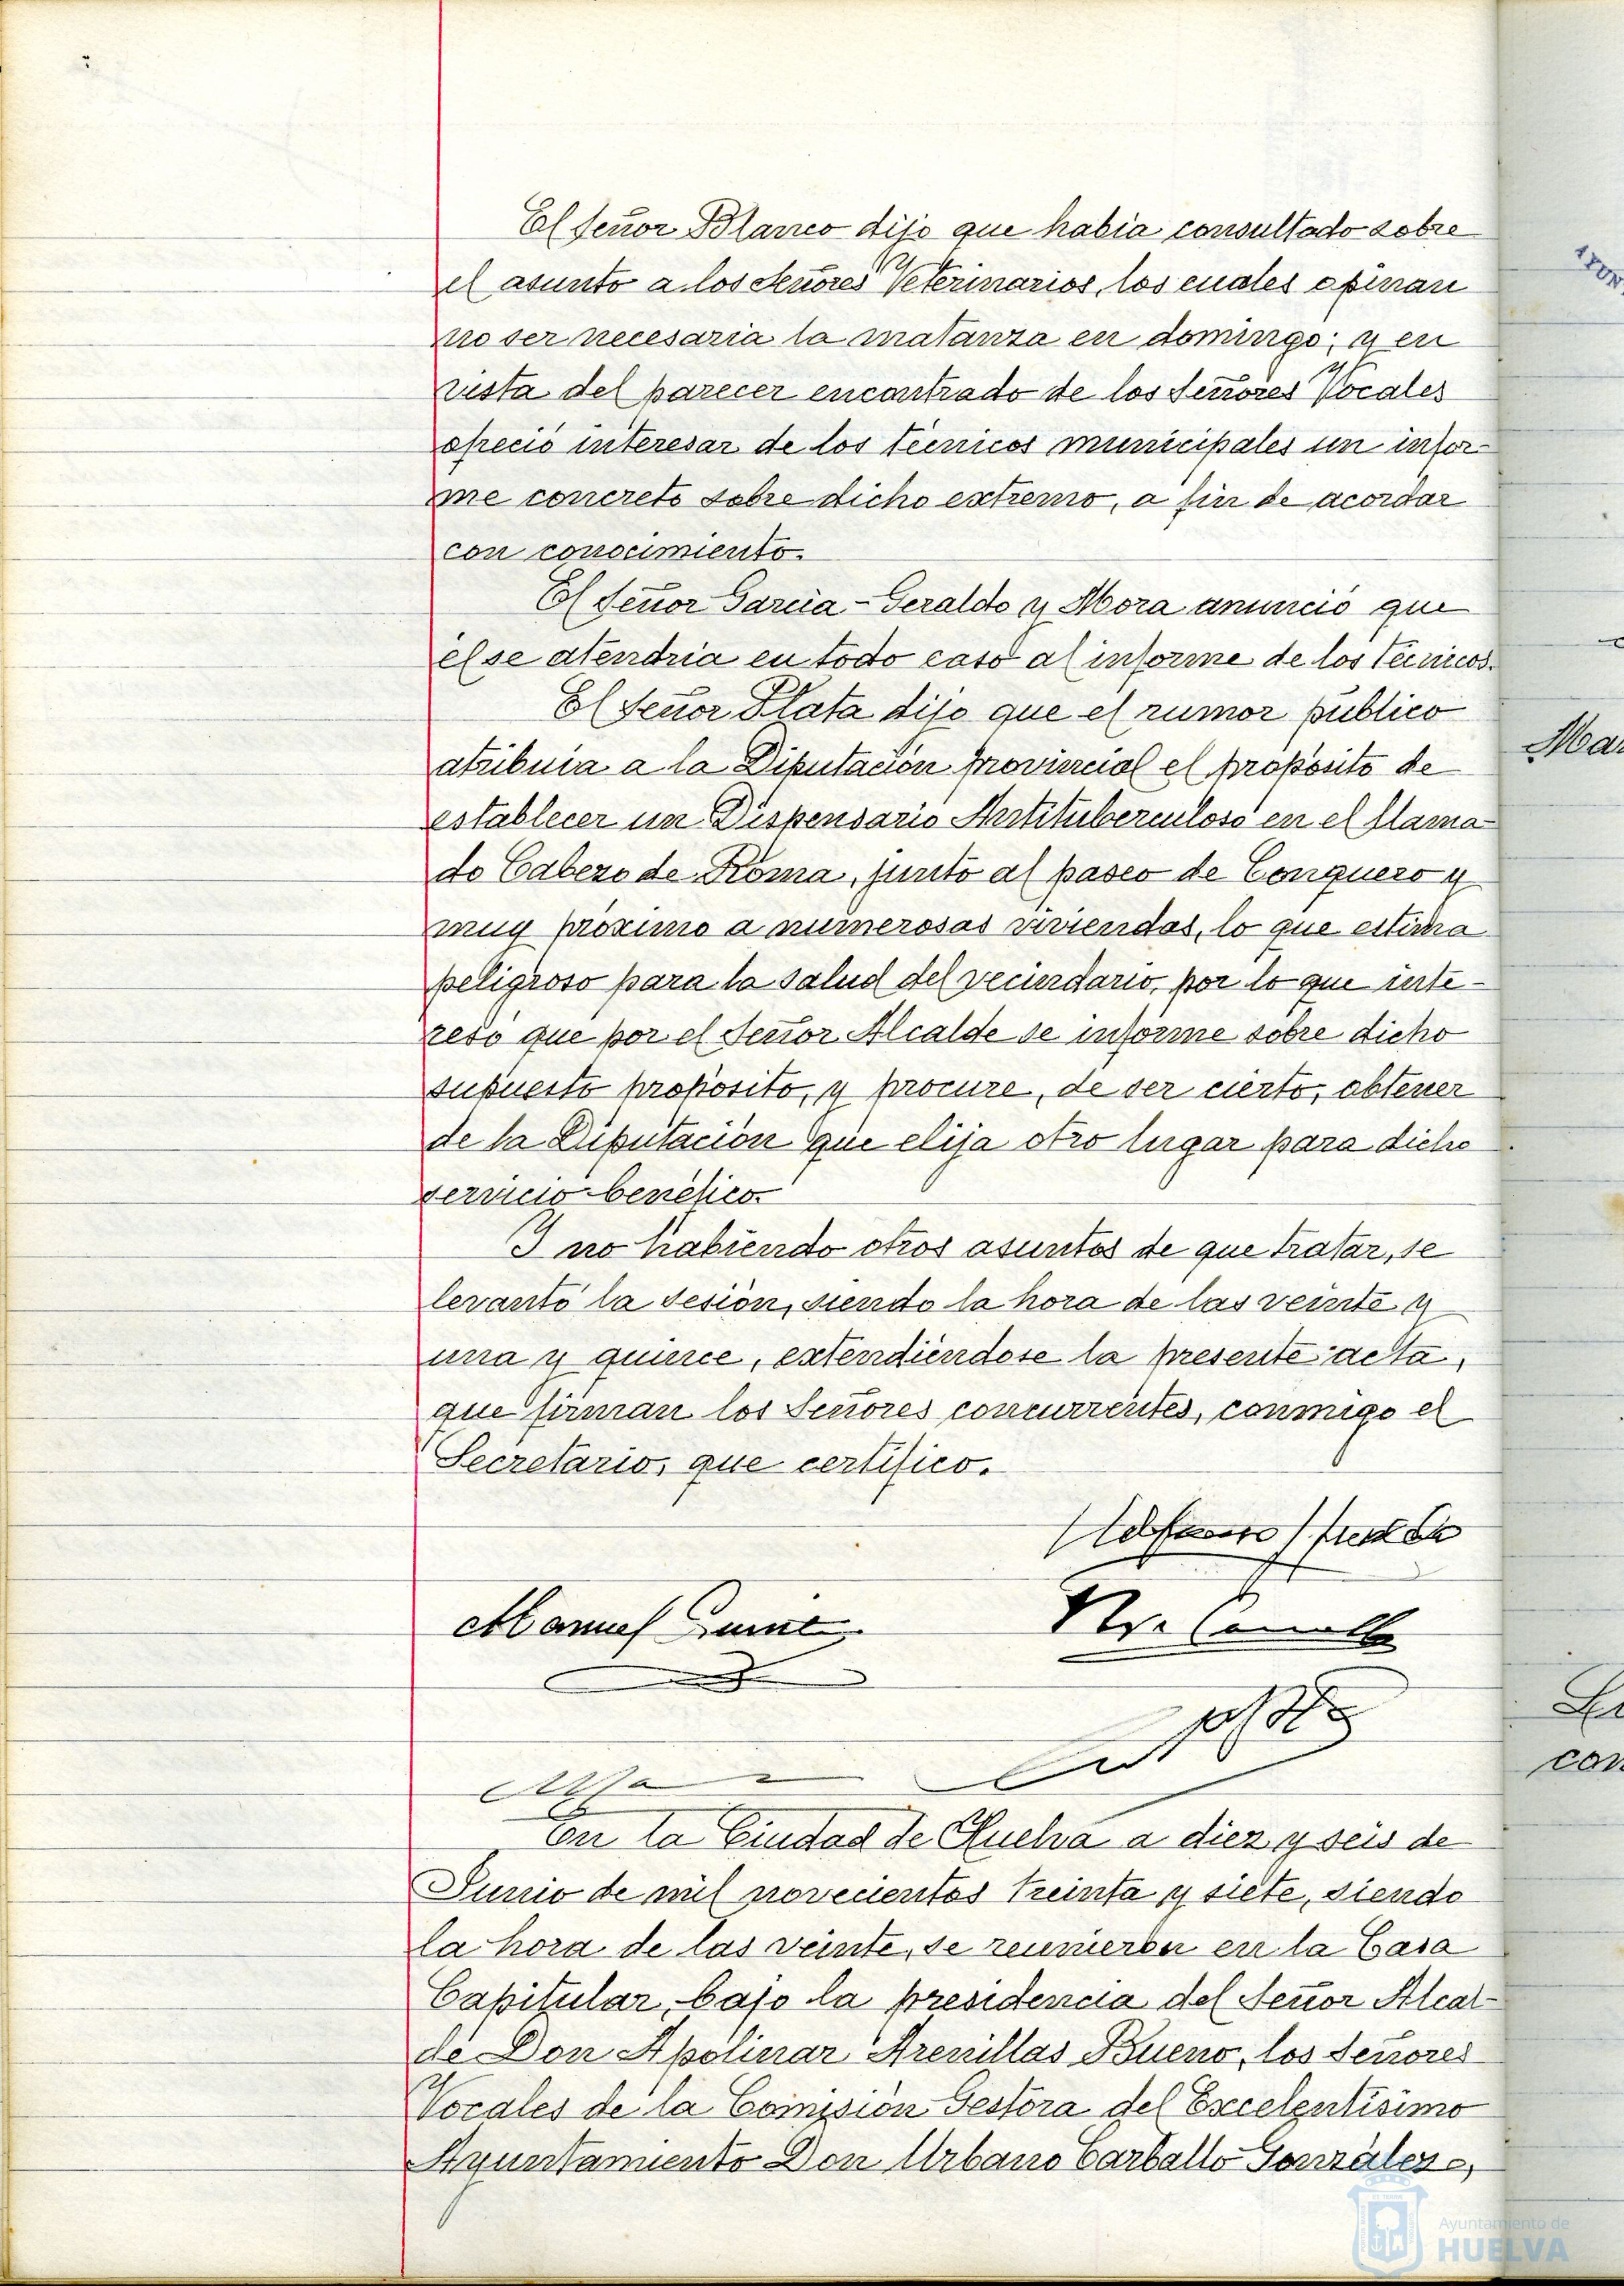 El Señor Blanco dijo que habia consultado sobre
el asunto a los Señores Veterinarios, los cuales opinan
no ser necesaria la matanza en domingo; y en
vista del parecer encontrado de los Señores Vocales
ofreció interesar de los técnicos municipales un infor-
me concreto sobre dicho extremo, a fin de acordar
con conocimiento.
El Señor Garcia-Geraldo y Mora anunció que
él se atendria en todo caso al informe de los Técnicos.
El Señor Plata dijo que el rumor público
atribuia a la Diputación provincial el propósito de
establecer un Dispensario Antituberculoso en el llama-
do Cabezo de Roma, junto al paseo de Conquero y
muy próximo a numerosas viviendas, lo que estima
peligroso para la salud del vecindario, por lo que inte-
resó que por el Señor Alcalde se informe sobre dicho
supuesto propósito, y procure, de ser cierto, obtener
de la Diputación que elija otro lugar para dicho
servicio benéfico.
Y no habiendo otros asuntos de que tratar, se
levantó la sesión, siendo la hora de las veinte y
una y quince, extendiéndose la presente acta,
que firman los Señores concurrentes, conmigo el
Secretario, que certifico.
Manuel
En la Ciudad de Huelva a diez y seis de
Junio de mil novecientos treinta y siete, siendo
la hora de las veinte, se reunieron en la Casa
Capitular, bajo la presidencia del Señor Alcal-
de Don Apolinar Arenillas Bueno, los Señores
Vocales de la Comisión Gestora del Excelentísimo
Ayuntamiento Don Urbano Carballo González,
Ayuntamiento de
HUELVA
AYUN
Ma
con